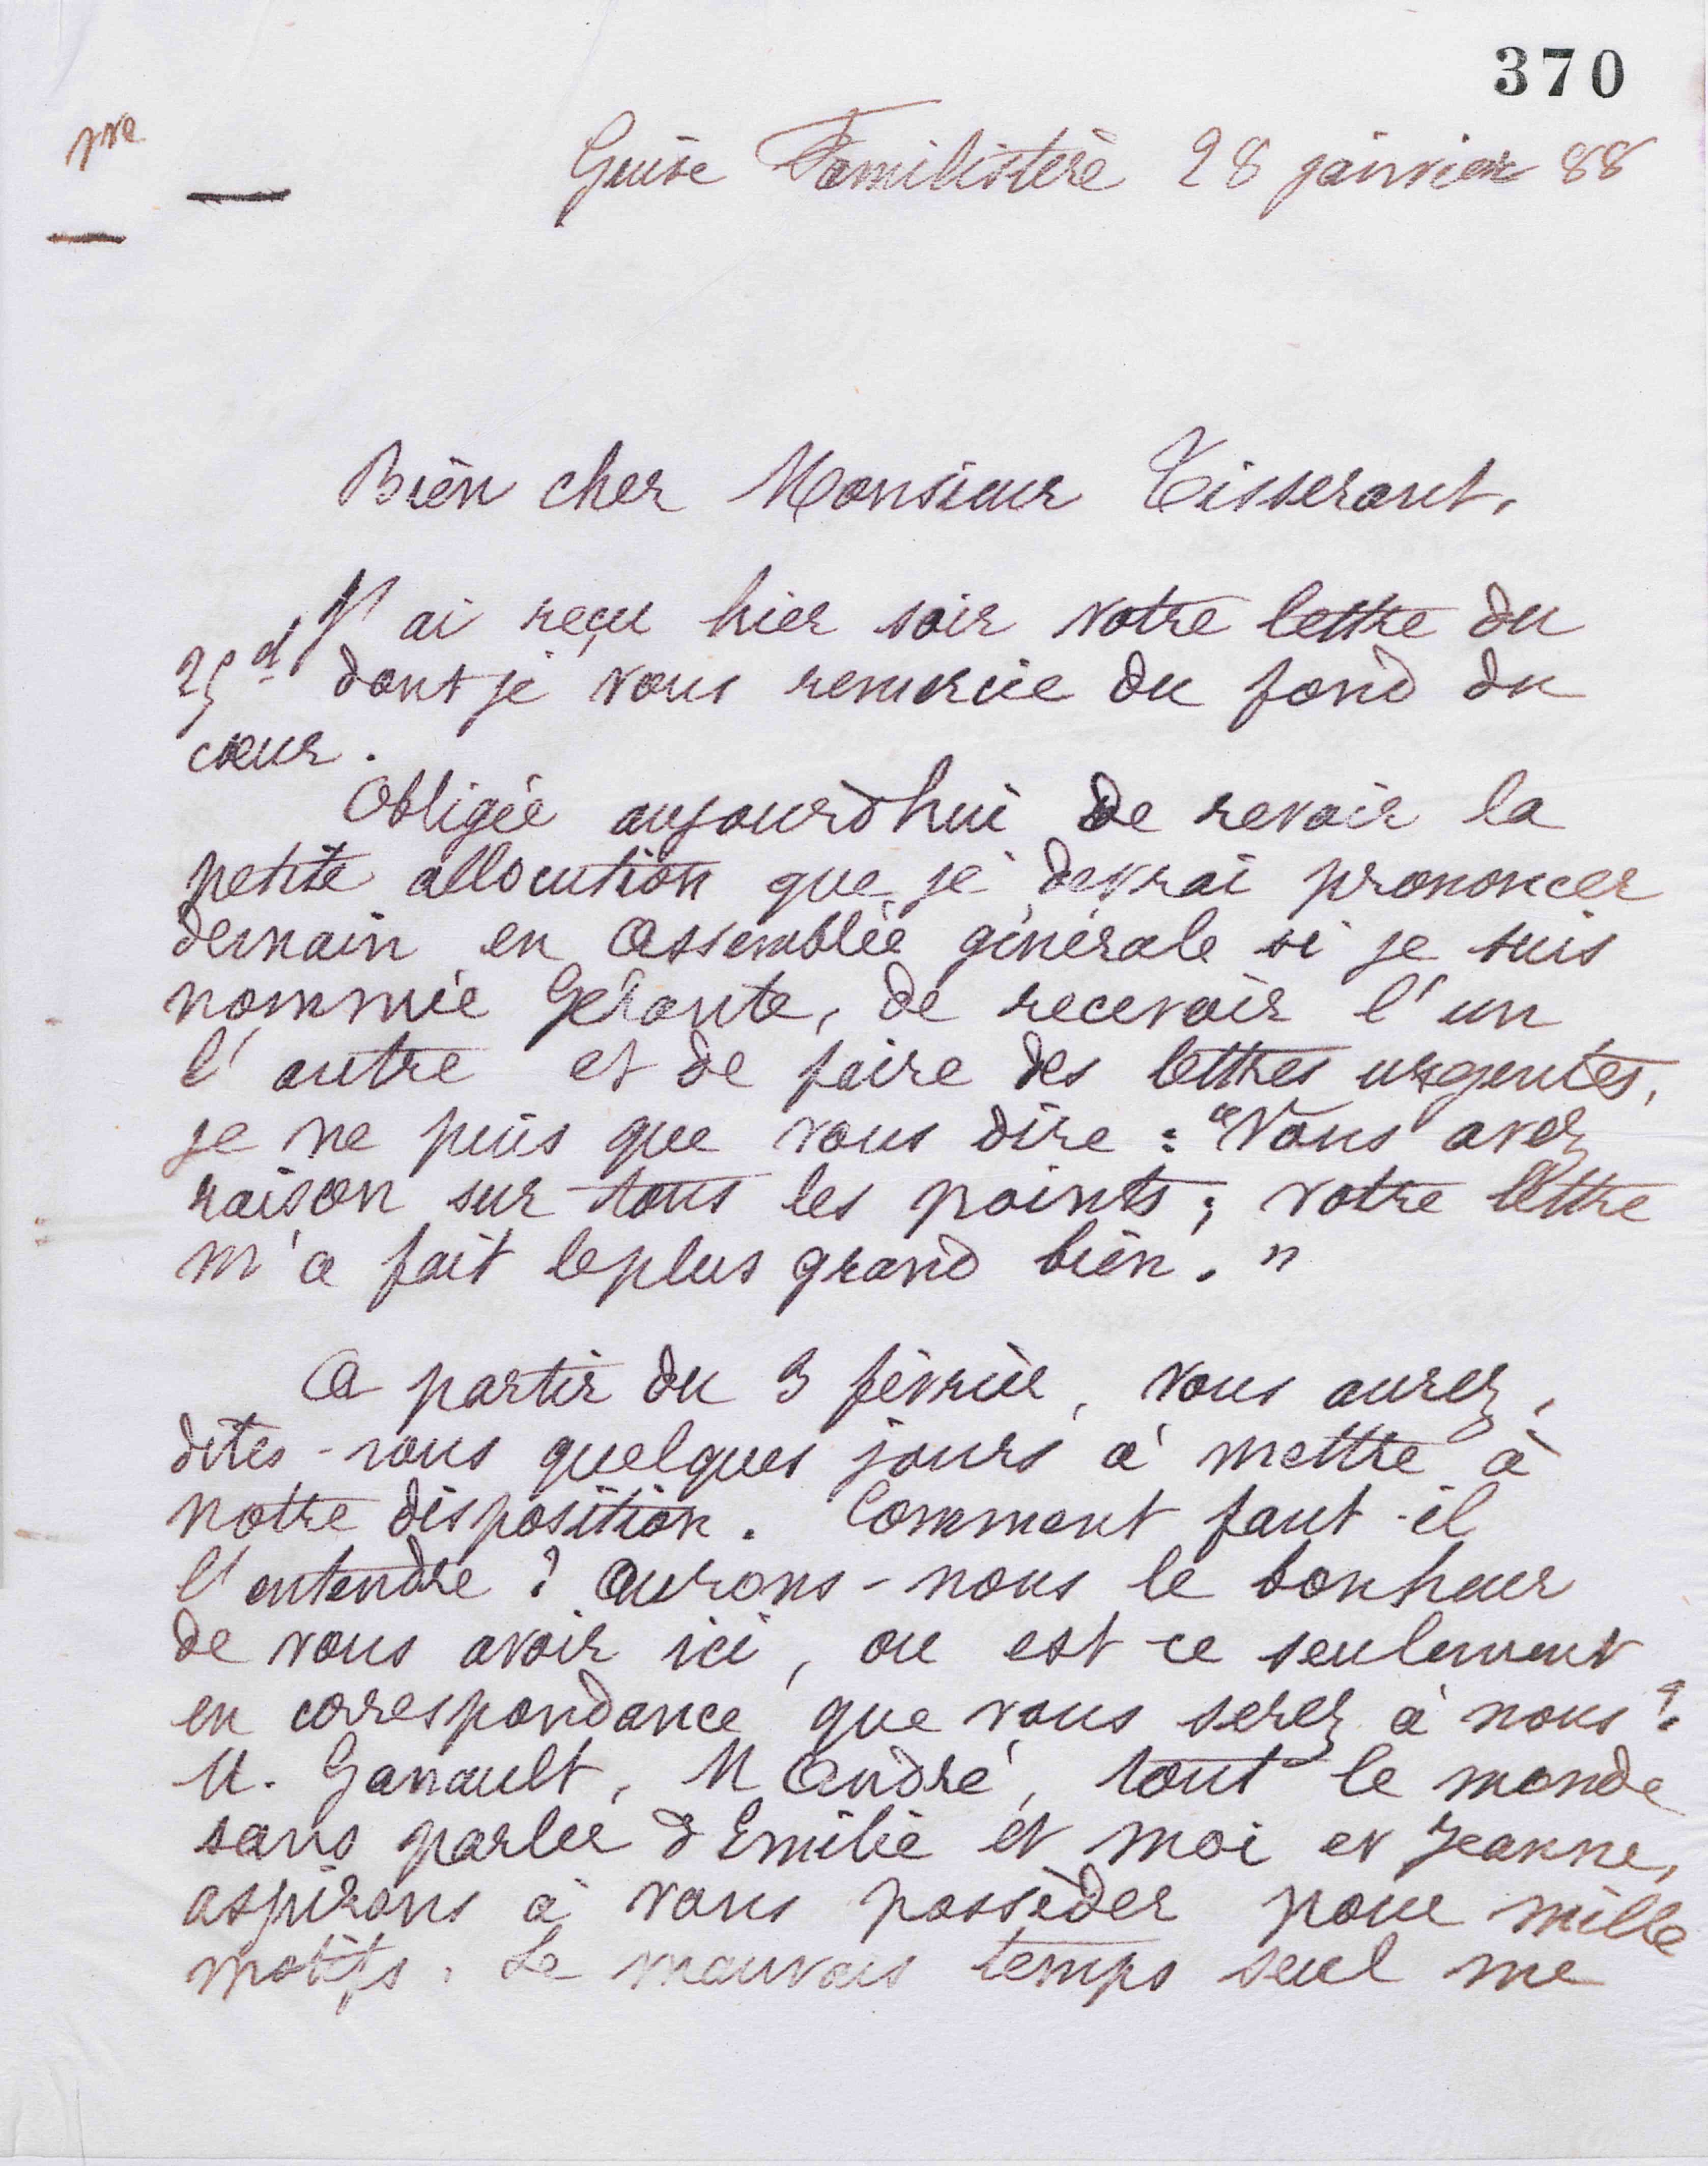 370
pve
Guise Familistère 28 janvier 88
Bien cher Monsieur Tisserant,
J'ai reçu hier soir votre lettre du
25 dt dont je vous remercie du fond du
cœur.
Obligée aujourd'hui de revoir la
petite allocution que je devrai prononcer
demain en Assemblée générale si je suis
nommée Gérante, de recevoir l'un
l'autre et de faire des lettres urgentes,
je ne puis que vous dire : "Vous avez
raison sur tous les points ; votre lettre
m'a fait le plus grand bien."
A partir du 3 février, vous aurez,
dites-vous quelques jours à mettre à
notre disposition. Comment faut-il
l'entendre ? Aurons-nous le bonheur
de vous avoir ici, ou est-ce seulement
en correspondance que vous serez à nous ?
M. Ganault, M André, tout le monde
sans parler d'Emilie et moi et Jeanne,
aspirons à vous posséder pour mille
motifs. Le mauvais temps seul me